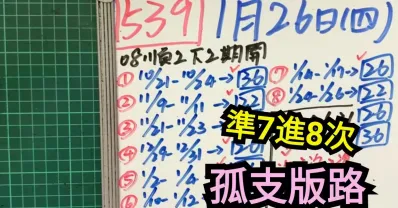 539 1月26日(四)
08順2下2期開
① 10/21-10/24→36
② 11/9-11/11→22
③ 11/21-11/23→
④ 12/29-12/31→
⑤ 1/2-1/4
⑥ 1/10-1/12
⑦ 1/14-1/17→26
⑧ 1/24-1/26→22
26
36
準7進8次
孤支版路